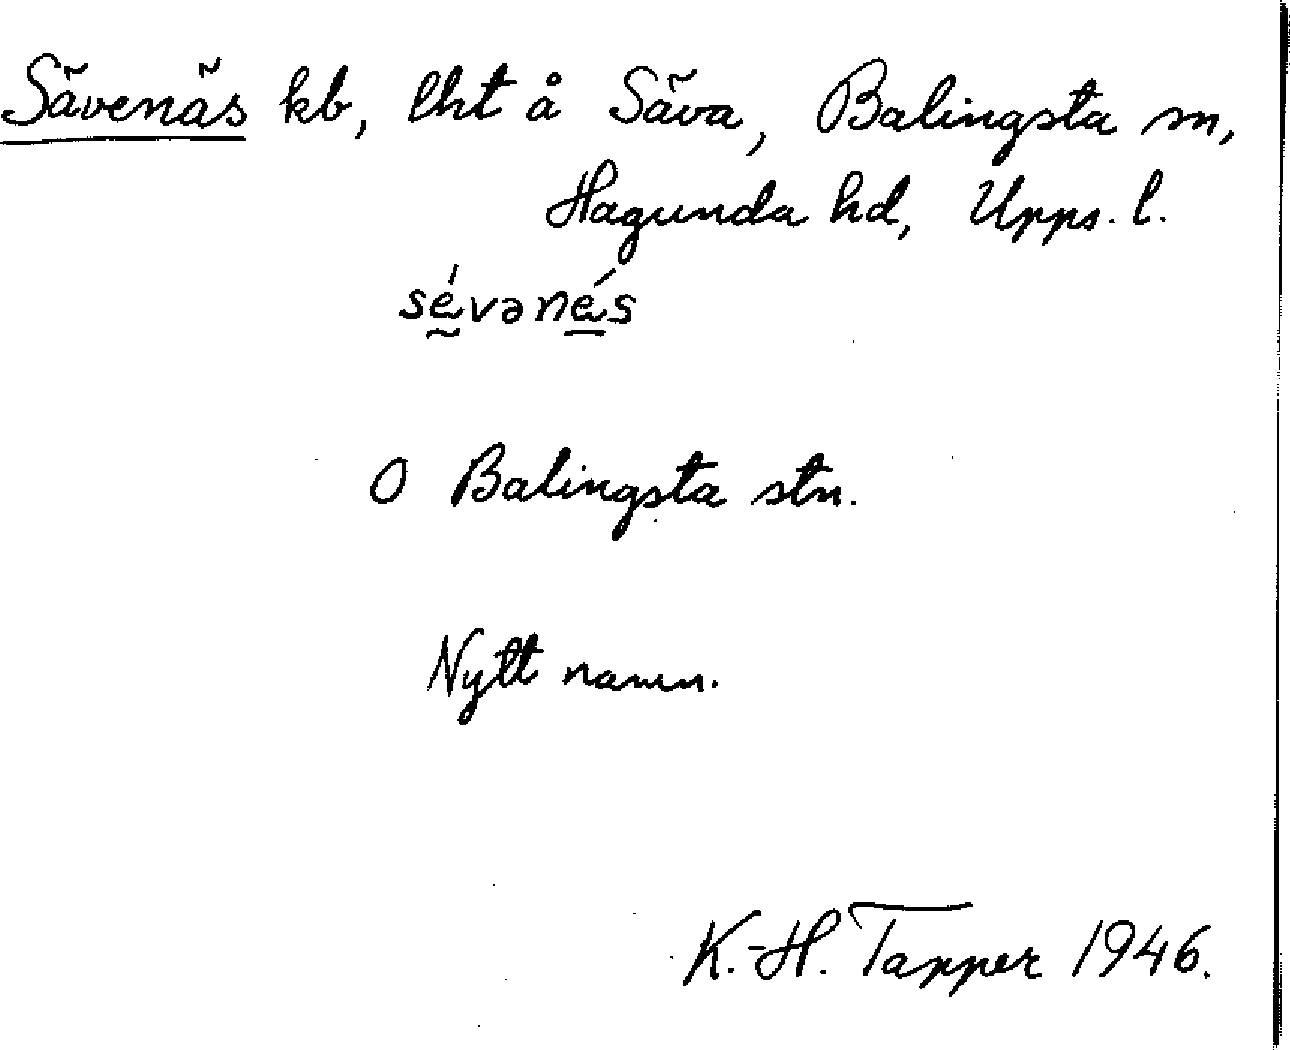 Sävenäs kb, lht å Säva, Balingsta sn,
Hagunda hd, Upps. l.
sḛ́vəné̱s
O Balingsta stn.
Nytt namn.
K.-H. Tapper 1946.